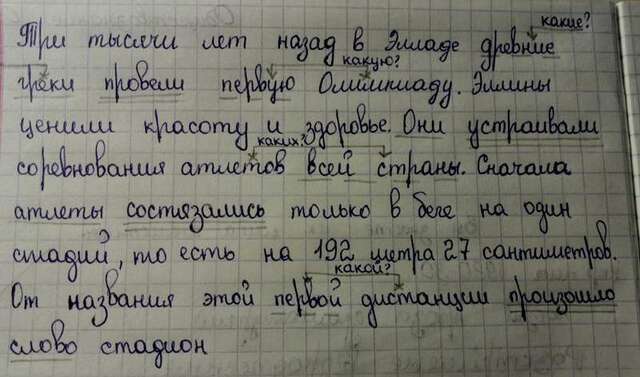 какие?
Три тысячи лет назад в Элладе древние
какую?
греки провели первую Олимпиаду. Эллины
ценили красоту и здоровье. Они устраивали
каких?
соревнования атлетов всей страны. Сначала
атлеты состязались только в беге на один
стадий, то есть на 192 метра 27 сантиметров.
какой?
От названия этой первой дистанции произошло
слово стадион